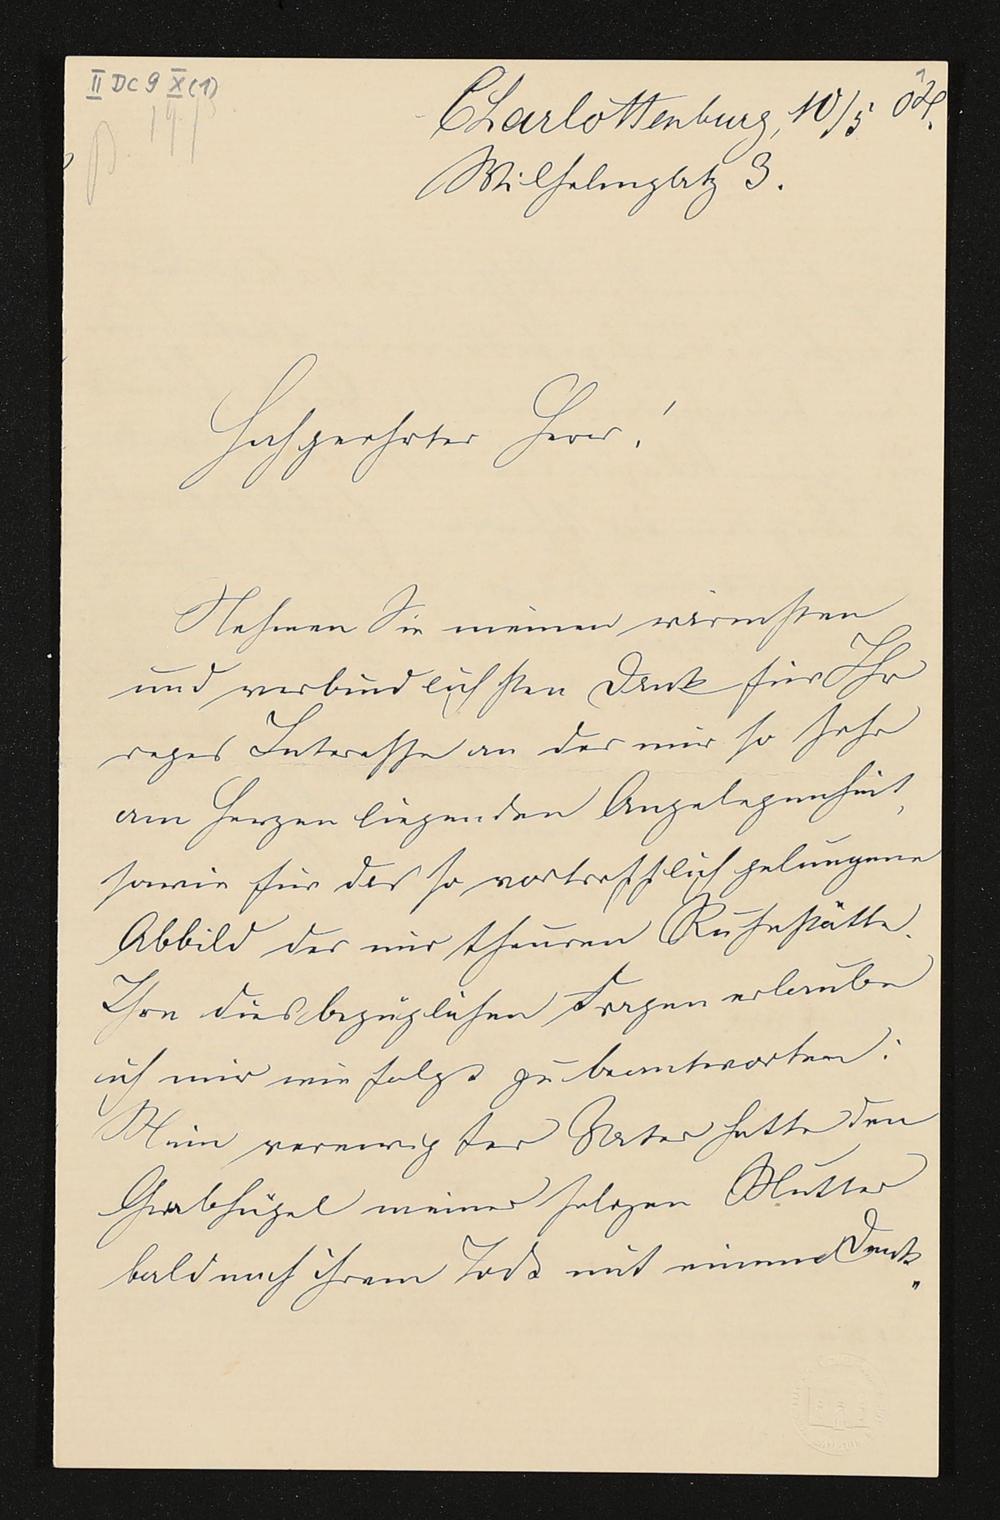 II DC 9 X (1)
Charlottenburg, 10/5
Wilhelmplatz 3.
Hochgeehrter Herr!
Nehmen Sie meinen wärmsten
und verbindlichsten Dank für Ihr
reges Interesse an der mir so sehr
am Herzen liegenden Angelegenheit,
sowie für das so vortrefflich gelungene
Abbild der mir theuren Ruhestätte.
Ihre diesbezüglichen Fragen erlaube
ich mir wie folgt zu beantworten:
Mein verewigter Vater hatte den
Grabhügel meiner seligen Mutter
bald nach ihrem Tode mit einem Denk„